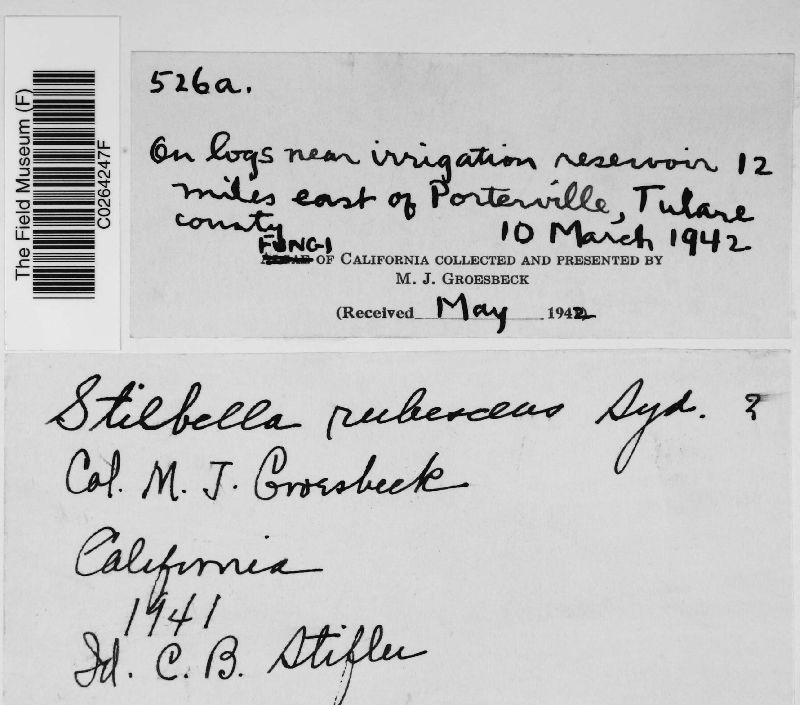 The Field Museum (F)
C0264247F
526a.
On logs near irrigation reservoir 12
miles east of Porterville, Tulare
county
10 March 1942
FUNGI
OF CALIFORNIA COLLECTED AND PRESENTED BY
M. J. GROESBECK
(Received May 1942
Stilbella rubescens Syd. ?
Col. M. J. Groesbeck
California
1941
Id. C. B. Stifler